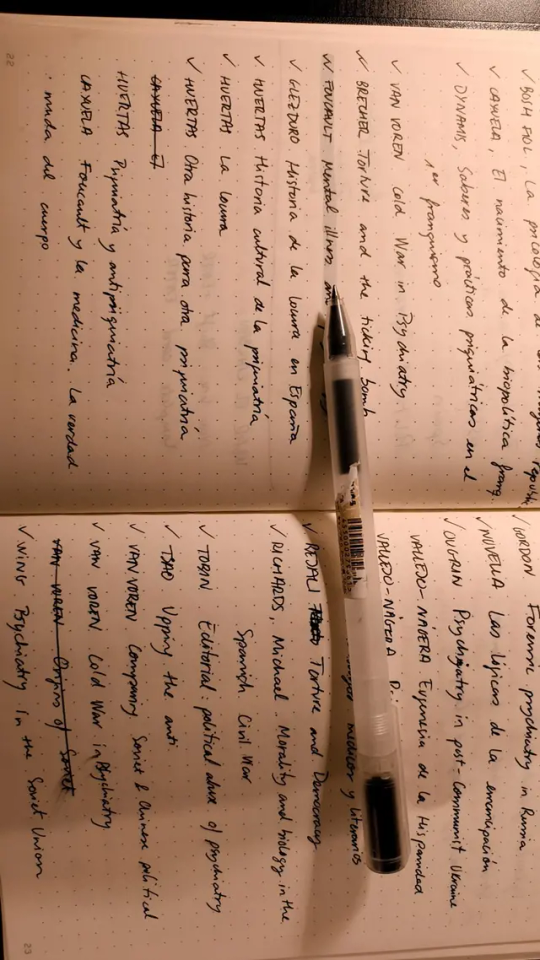 ✓ BOSH FIOL, La psicología de las
✓ CAYUELA, El nacimiento de la biopolítica franq.
✓ DYNAMIS, Saberes y prácticas psiquiátricas en el
1er franquismo
✓ VAN VOREN Cold War in Psychiatry
✓ BRECHER Torture and the ticking bomb
✓ FOUCAULT Mental illness and
✓ GLEZDURO Historia de la locura en España
✓ HUERTAS Historia cultural de la psiquiatría
✓ HUERTAS La locura
✓ HUERTAS Otra historia para otra psiquiatría
CAYUELA El
HUERTAS Psiquiatría y antipsiquiatría
CAYUELA Foucault y la medicina. La verdad
muda del cuerpo
22
✓ GORDON Forensic psychiatry in Russia
✓ NOVELLA Las lógicas de la emancipación
✓ OUGRIN Psychiatry in post-Communist Ukraine
VALLEJO-NÁGERA Eugenesia de la Hispanidad
VALLEJO-NÁGERA
médicos y literarios
✓ REJALI Torture and Democracy
✓ RICHARDS, Michael. Morality and biology in the
Spanish Civil War
✓ TOBIN Editorial: political abuse of psychiatry
✓ TSAO Upping the anti
✓ VAN VOREN Comparing Soviet & Chinese political
✓ VAN VOREN Cold War in Psychiatry
VAN VOREN Origins of Soviet
✓ WING Psychiatry in the Soviet Union
23